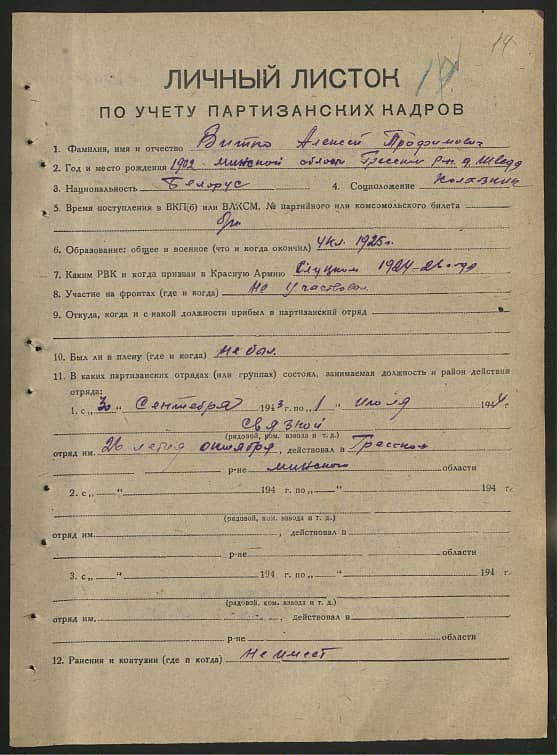 14
ЛИЧНЫЙ ЛИСТОК
ПО УЧЕТУ ПАРТИЗАНСКИХ КАДРОВ
1. Фамилия, имя и отчество Витко Алексей Трофимович
2. Год и место рождения 1902 Минской области Гресский р-н д. Шведы
3. Национальность Белорус 4. Соцположение Колхозник
5. Время поступления в ВКП(б) или ВЛКСМ, № партийного или комсомольского билета
б/п
6. Образование: общее и военное (что и когда окончил) 4 кл. 1925 г.
7. Каким РВК и когда призван в Красную Армию Слуцким 1924-26 года
8. Участие на фронтах (где и когда) Не участвовал
9. Откуда, когда и с какой должности прибыл в партизанский отряд
10. Был ли в плену (где и когда) не был
11. В каких партизанских отрядах (или группах) состоял, занимаемая должность и район действий
отряда:
1. с „30“ Сентября 1943 г. по „1“ Июля 1944 г.
Связной
(рядовой, ком. взвода и т. д.)
отряд им. 26 летия октября, действовал в Гресском
р-не Минской области
2. с „ “ 194 г. по „ “ 194 г.
(рядовой, ком. взвода и т. д.)
отряд им. , действовал в
р-не области
3. с „ “ 194 г. по „ “ 194 г.
(рядовой, ком. взвода и т. д.)
отряд им. , действовал в
р-не области
12. Ранения и контузии (где и когда) Не имеет